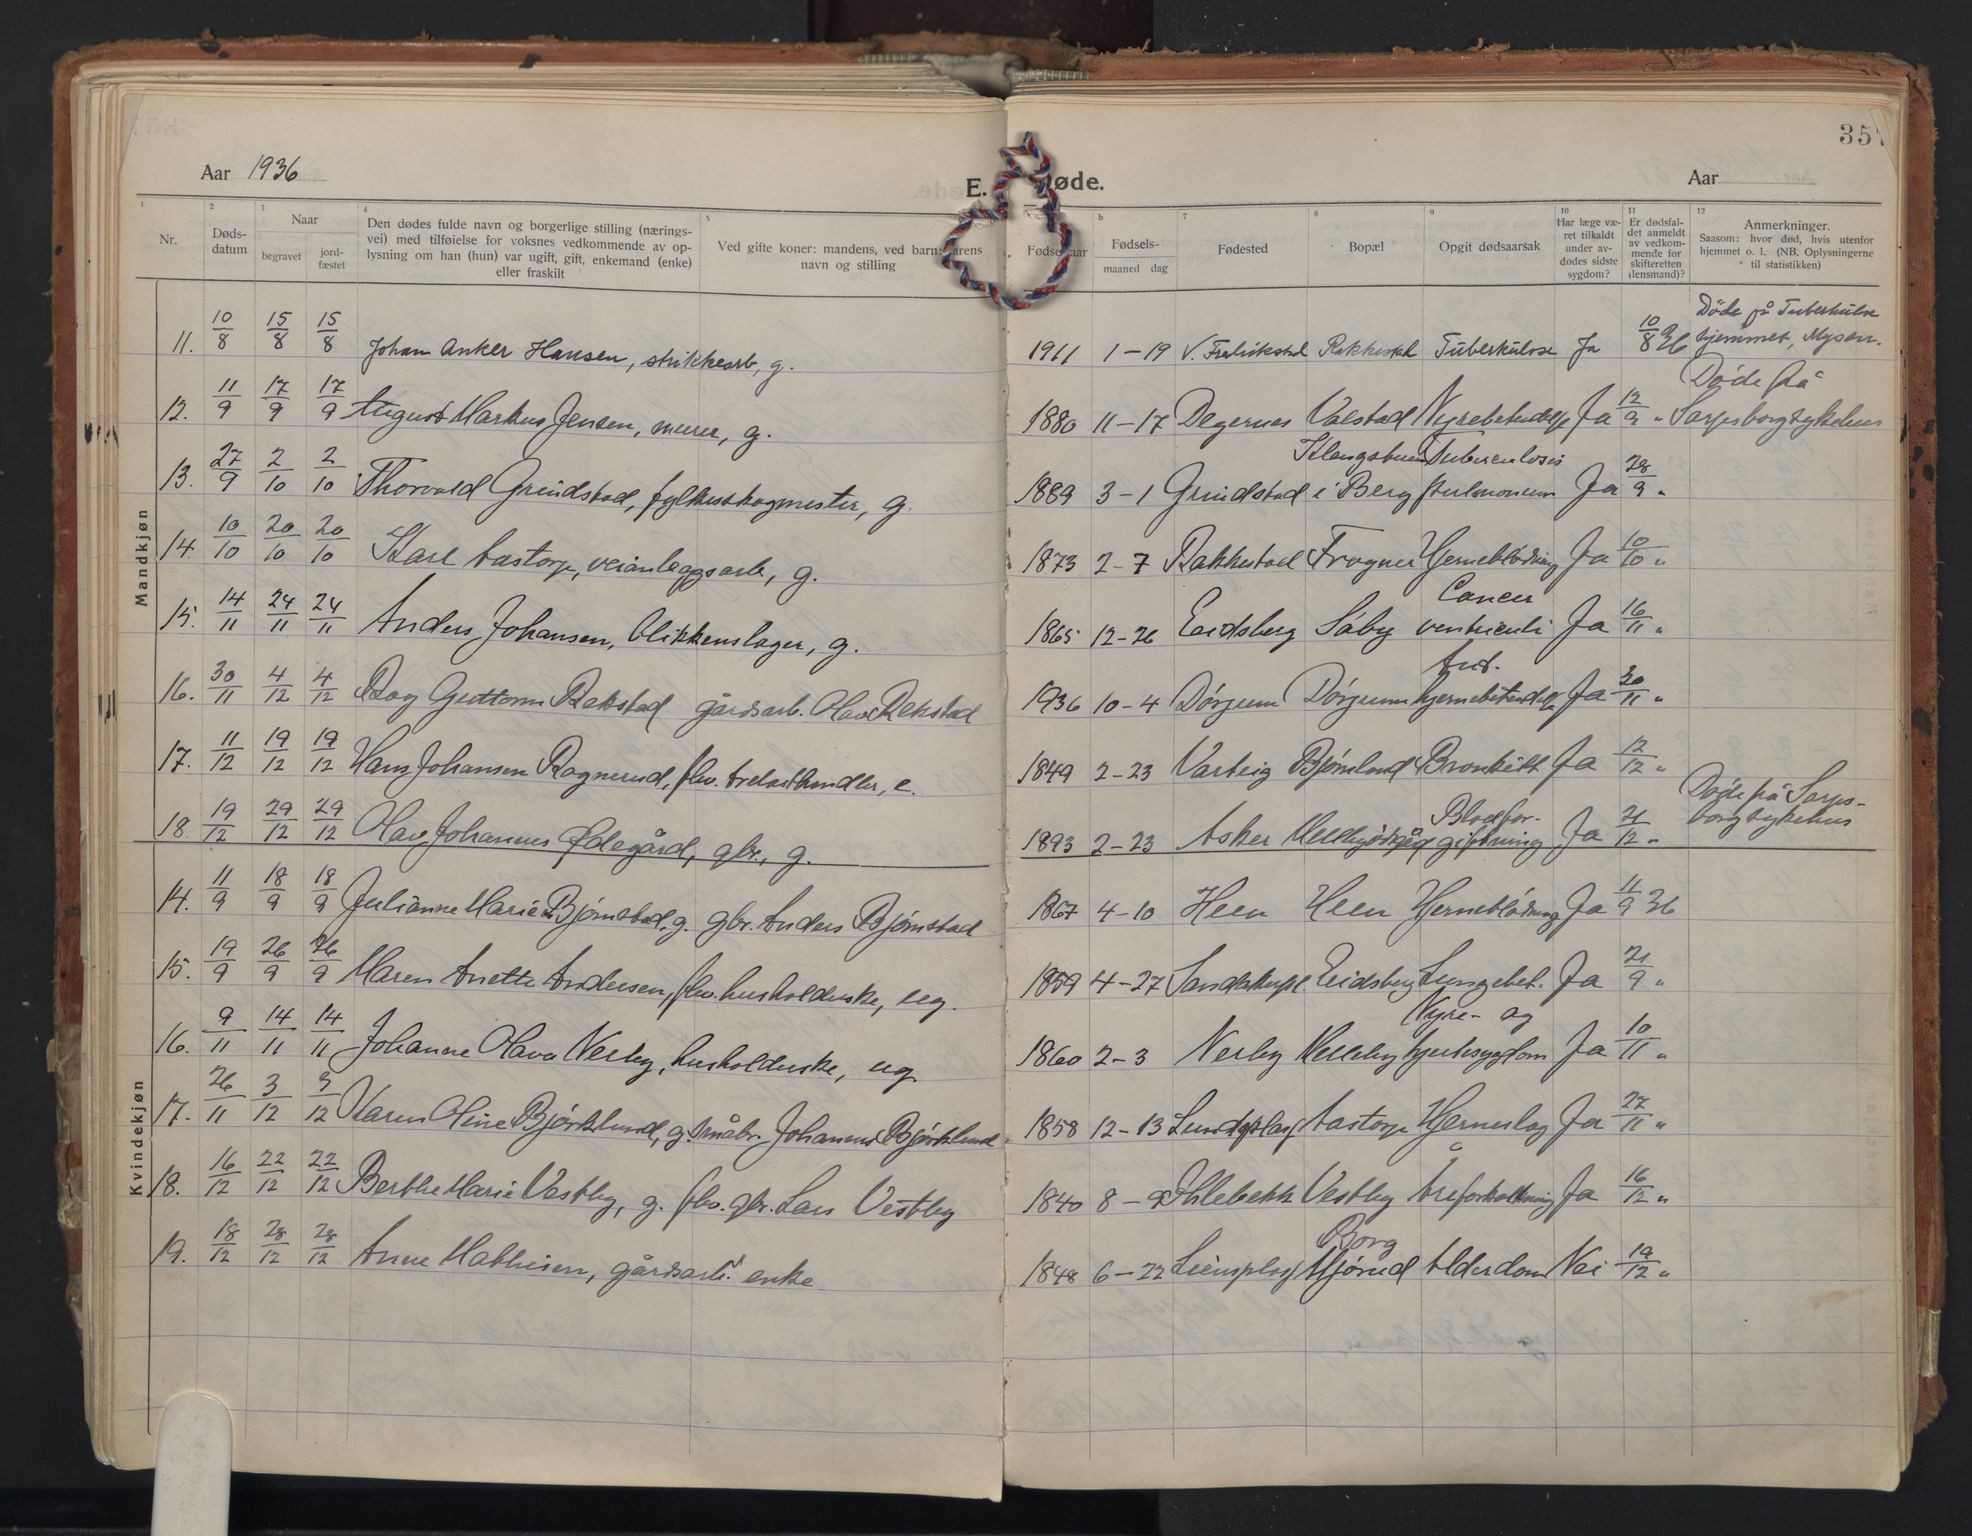 Aar 1936
E. Døde.
Aar
35
1 2 3 4 5 b 7 8 9 10 11 12
Nr.
Dødsdatum
Naar
begravet
jordfæstet
Den dødes fulde navn og borgerlige stilling (nærings-
vei) med tilføielse for voksnes vedkommende av op-
lysning om han (hun) var ugift, gift, enkemand (enke)
eller fraskilt
Ved gifte koner: mandens, ved barn: farens
navn og stilling
Fødselsaar
Fødsels-
maaned dag
Fødested
Bopæl
Opgit dødsaarsak
Har læge væ-
ret tilkaldt
under av-
dødes sidste
sygdom?
Er dødsfal-
det anmeldt
av vedkom-
mende for
skifteretten
(lensmand)?
Anmerkninger.
Saasom: hvor død, hvis utenfor
hjemmet o. l. (NB. Oplysningerne
til statistikken)
Mandkjøn
11. 10/8 15/8 15/8 Johan Anker Hansen, strikkearb, g. 1911 1-19 V. Fredrikstad Rakkestad Tuberkulose Ja 10/8 36 Døde på Tuberkulose
hjemmet, Mysen.
12. 11/9 17/9 17/9 August Markus Jensen, murer, g. 1880 11-17 Degernes Valstad Nyrebetendelse Ja 12/9 " Døde på
Sarpsborg sykehus
13. 27/9 2/10 2/10 Thorvald Grindstad, fylkesskogmester, g. 1889 3-1 Grindstad i Berg Tuberculosis
pulmonum Ja 28/9 "
14. 10/10 20/10 20/10 Karl Aastorp, veianleggsarb, g. 1873 2-7 Rakkestad Frogner Hjerneblødning Ja 10/10 "
15. 14/11 24/11 24/11 Anders Johansen, blikkenslager, g. 1865 12-26 Eidsberg Säby Cancer
ventriculi Ja 16/11 "
16. 30/11 4/12 4/12 Roy Guttorm Rakstad gårdsarb. Olav Rakstad 1936 10-4 Dørjum Dørjum hjernebetendelse Ja 30/11 "
17. 11/12 19/12 19/12 Hans Johansen Ragnerud, fhv. trelasthandler, e. 1849 2-23 Varteig Bjørnland Bronkitt Ja 12/12 "
18 19/12 29/12 29/12 Olav Johannes Ødegård, gbr., g. 1893 2-23 Asker Blodfor-
giftning Ja 21/12 " Døde på Sarps-
borg sykehus
Kvindekjøn
14. 11/9 18/9 18/9 Julianne Marie Bjørnstad, g. gbr. Anders Bjørnstad 1867 4-10 Heen Heen Hjerneblødning Ja 11/9 36
15. 19/9 26/9 26/9 Maren Anette Andersen, fhv. husholderske, ug. 1859 4-27 Eidsberg Lungebet. Ja 21/9 "
16. 9/11 14/11 14/11 Johanne Olava Nerby, husholderske, ug 1860 2-3 Nerby Melleby Nyre- og
hjertesygdom Ja 10/11 "
17. 26/11 3/12 3/12 Karen Oline Björklund, g. småbr. Johannes Björklund 1858 12-13 Lundsplass Aastorp Hjerneslag Ja 27/11 "
18. 16/12 22/12 22/12 Berthe Marie Vestby, g. fhv. gbr. Lars Vestby 1840 8-9 Ihlebekk Vestby Åreforkalkning Ja 16/12 "
19. 18/12 28/12 28/12 Anne Mathisen, gårdsarb. enke 1848 6-22 Liensplass Borg
Mjørud Alderdom Nei 19/12 "